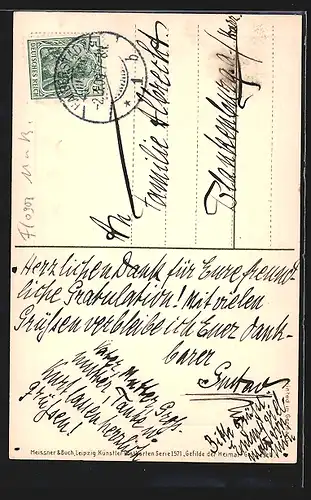 DEUTSCHES REICH
An
Familie Albrecht
Blankenburg/Harz
Herzlichen Dank für Eure freund-
liche Gratulation! Mit vielen
Grüßen verbleibe ich Euer dank-
barer
Gustav
Vater, Mutter, Groß-
mutter, Tante
Karl lassen herzlich
grüßen!
Bitte
Meissner & Buch, Leipzig Künstler-Postkarten Serie 1571 „Gefilde der Heimat"